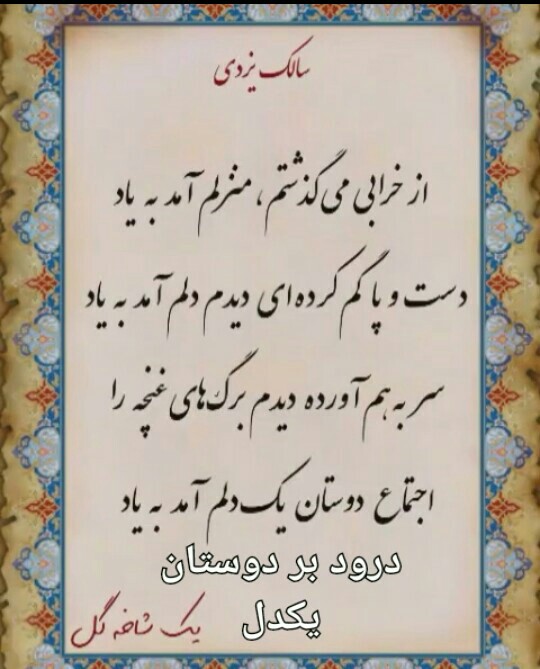 سالک یزدی
از خرابی می گذشتم، منزلم آمد به یاد
دست و پا گم کرده ای دیدم دلم آمد به یاد
سر به هم آورده دیدم برگ های غنچه را
اجتماع دوستان یک دلم آمد به یاد
درود بر دوستان
یکدل
یک شاخه گل